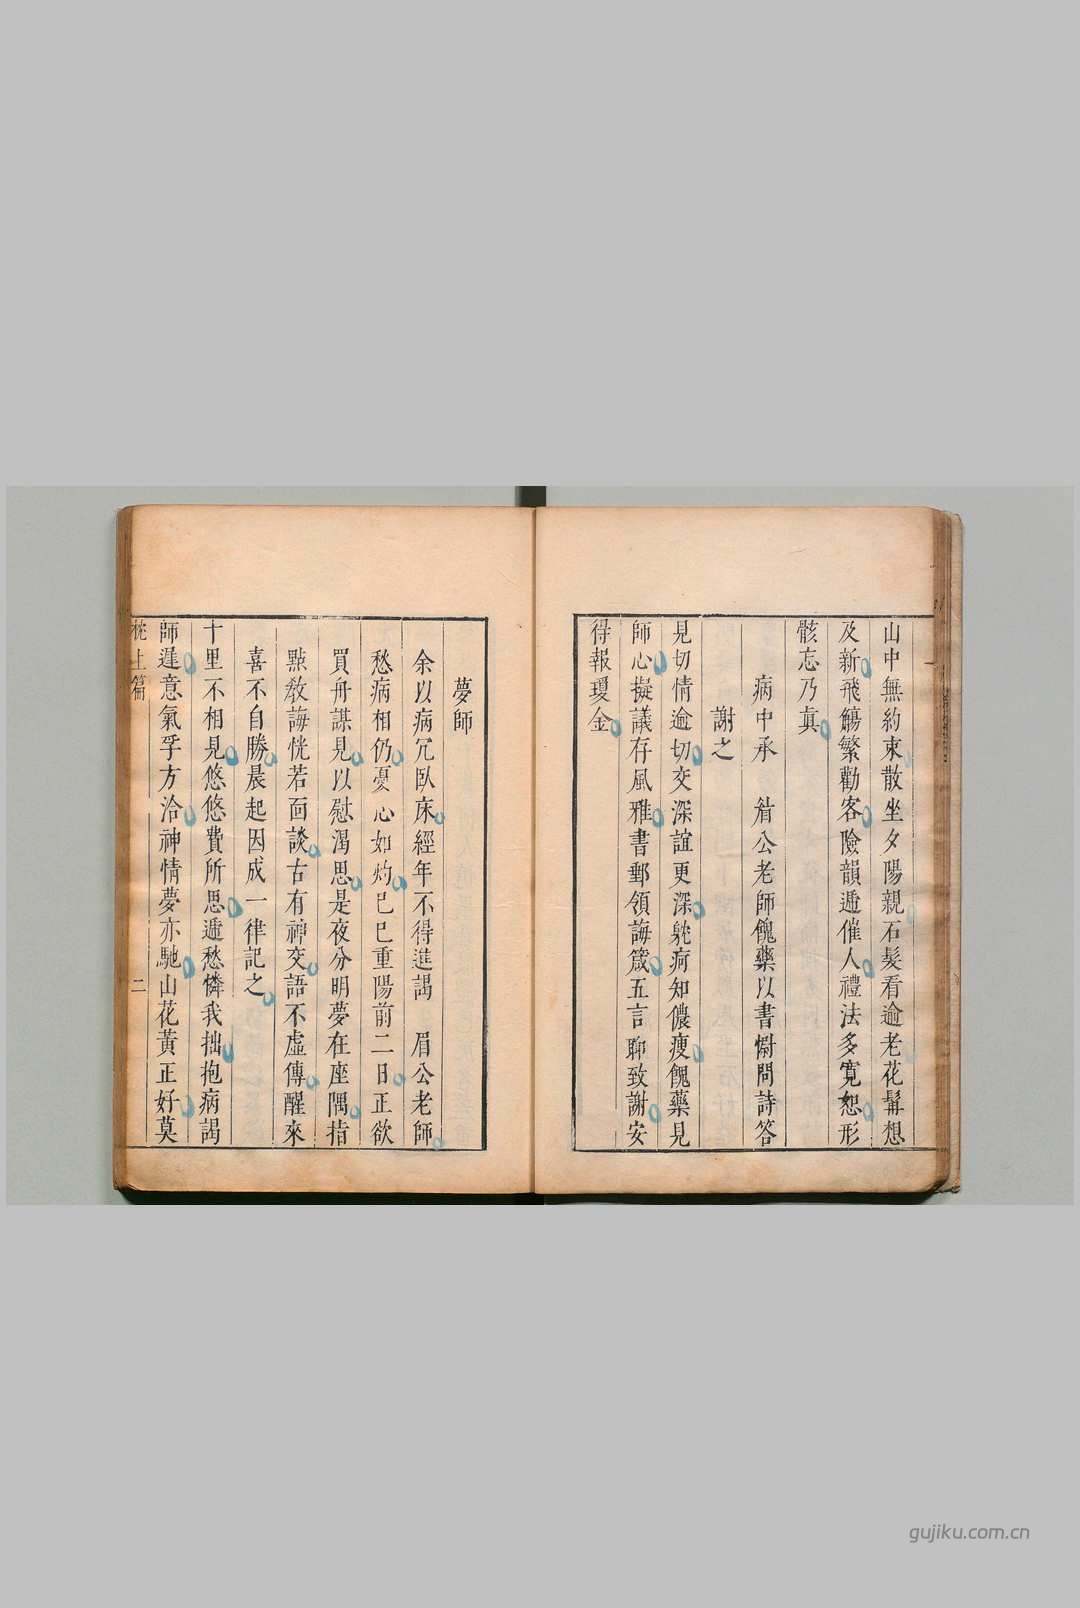 山中無約束散坐夕陽親石髮看逾老花髯想
及新飛觴繁勸客險韻遞催人禮法多寬恕形
骸忘乃眞
病中承 眉公老師餽藥以書慰問詩答
謝之
見切情逾切交深誼更深躭痾知儂瘦餽藥見
師心擬議存風雅書郵領誨箴五言聊致謝安
得報瓊金
夢師
余以病冗臥床經年不得進謁 眉公老師
愁病相仍憂心如灼巳巳重陽前二日正欲
買舟謀見以慰渴思是夜分明夢在座隅指
點敎誨恍若面談古有神交語不虛傳醒來
喜不自勝晨起因成一律記之
十里不相見悠悠費所思遞愁憐我拙抱病謁
師遲意氣孚方洽神情夢亦馳山花黃正好莫
枕上篇 二
gujiku.com.cn